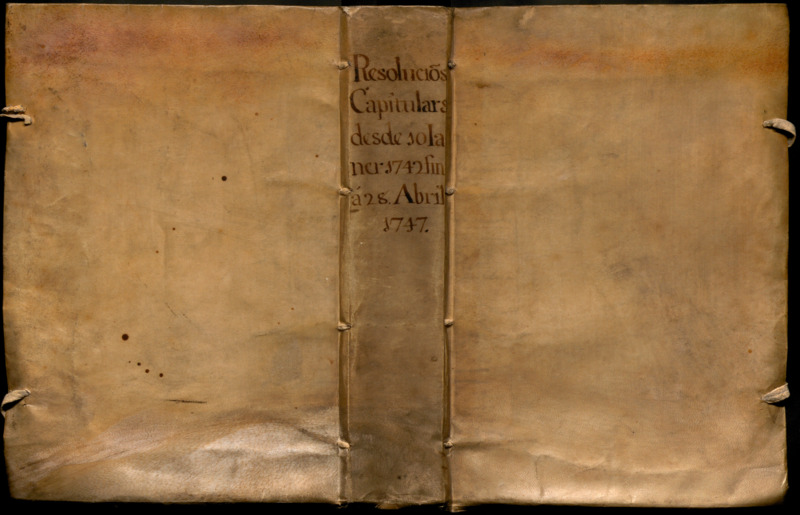 Resoluciõs
Capitulars
desde 10 Ia
ner 1742 fin
á 28. Abril
1747.